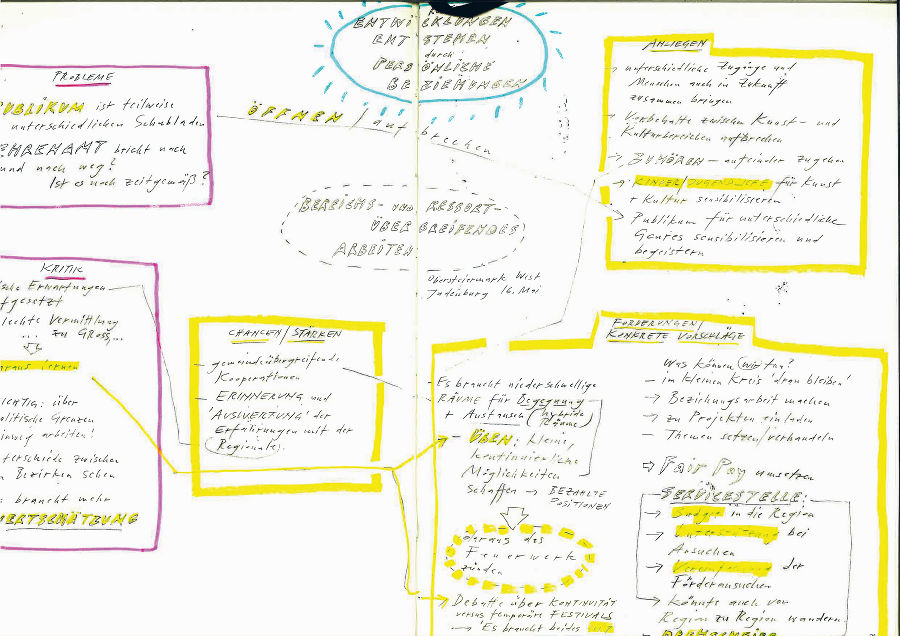 ENTWICKLUNGEN
ENTSTEHEN
durch
PERSÖNLICHE
BEZIEHUNGEN
PROBLEME
PUBLIKUM ist teilweise
unterschiedlichen Schubladen
EHRENAMT bricht nach
und nach weg?
Ist es noch zeitgemäß?
ÖFFNEN / aufbrechen
ANLIEGEN
unterschiedliche Zugänge und
Menschen auch in Zukunft
zusammen bringen
→ Vorbehalte zwischen Kunst- und
Kulturbereichen aufbrechen
→ ZUHÖREN - aufeinder zugehen
→ KINDER/JUGENDLICHE für Kunst
+ Kultur sensibilisieren
→ Publikum für unterschiedliche
Genres sensibilisieren und
begeistern
BEREICHS- UND RESSORT-
ÜBERGREIFENDES
ARBEITEN
Obersteiermark West
Judenburg 16. Mai
KRITIK
ische Erwartungen
fgesetzt
lechte Vermittlung
... zu GROSS,...
daraus lernen
ICHTIG: über
olitische Grenzen
inweg arbeiten!
terschiede zwischen
n Bezirken sehen
s braucht mehr
WERTSCHÄTZUNG
CHANCEN/STÄRKEN
- gemeindeübergreifende
Kooperationen
- ERINNERUNG und
'AUSWERTUNG' der
Erfahrungen mit der
(Regionale).
- Es braucht niederschwellige
RÄUME für Begegnung
+ Austausch (hybride
Räume)
- ÜBEN: kleine,
kontinuierliche
Möglichkeiten
schaffen → BEZAHLTE
POSITIONEN
daraus das
Feuerwerk
zünden
→ Debatte über KONTINUITÄT
versus temporäre FESTIVALS
→ 'Es braucht beides
FORDERUNGEN/
KONKRETE VORSCHLÄGE
Was können (wir) tun?
- im kleinen Kreis 'dran bleiben'
→ Beziehungsarbeit machen
→ zu Projekten einladen
- Themen setzen/verhandeln
⇒ Fair Pay umsetzen
SERVICESTELLE:
→ Budget in die Region
→ Unterstützung bei
Ansuchen
→ Vereinfachung der
Förderansuchen
→ könnte auch von
Region zu Region wandern